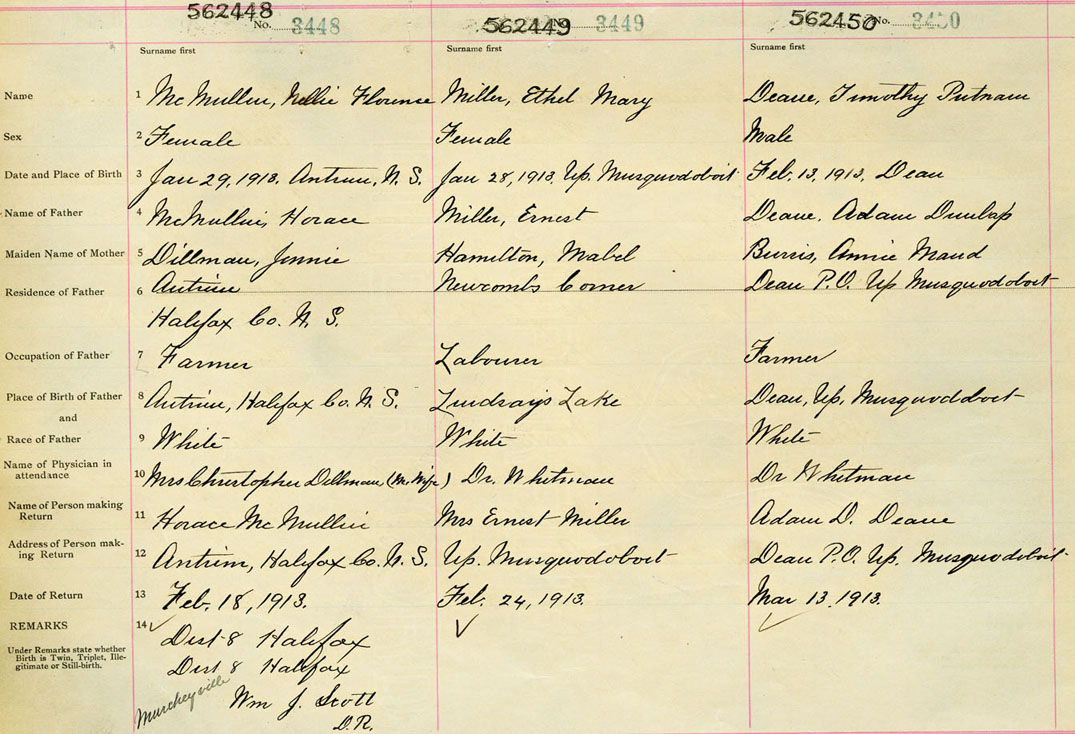 562448 562449 562450
No. 3448 No. 3449 No. 3450
Surname first Surname first Surname first
Name 1 McMullin, Nellie Florence Miller, Ethel Mary Deane, Timothy Putnam
Sex 2 Female Female Male
Date and Place of Birth 3 Jan 29, 1913. Antrim, N.S. Jan 28, 1913, Up. Musquodoboit Feb. 13, 1913, Dean
Name of Father 4 McMullin, Horace Miller, Ernest Deane, Adam Dunlap
Maiden Name of Mother 5 Dillman, Jennie Hamilton, Mabel Burris, Annie Maud
Residence of Father 6 Antrim Newcombs Corner Dean P.O. Up Musquodoboit
Halifax Co. N.S.
Occupation of Father 7 Farmer Labourer Farmer
Place of Birth of Father 8 Antrim, Halifax Co. N.S. Lindsays Lake Dean, Up, Musquodoboit
and
Race of Father 9 White White White
Name of Physician in attendance 10 Mrs Christopher Dillman (Mid Wife) Dr. Whitman Dr Whitman
Name of Person making Return 11 Horace McMullin Mrs Ernest Miller Adam D. Deane
Address of Person mak-ing Return 12 Antrim, Halifax Co. N.S. Up. Musquodoboit Dean P.O. Up, Musquodoboit
Date of Return 13 Feb. 18, 1913. Feb. 24, 1913. Mar 13. 1913.
REMARKS 14
Dist 8 Halifax
Under Remarks state whether
Birth is Twin, Triplet, Ille-
gitimate or Still-birth.
Dist 8 Halifax
Wm J. Scott
D.R.